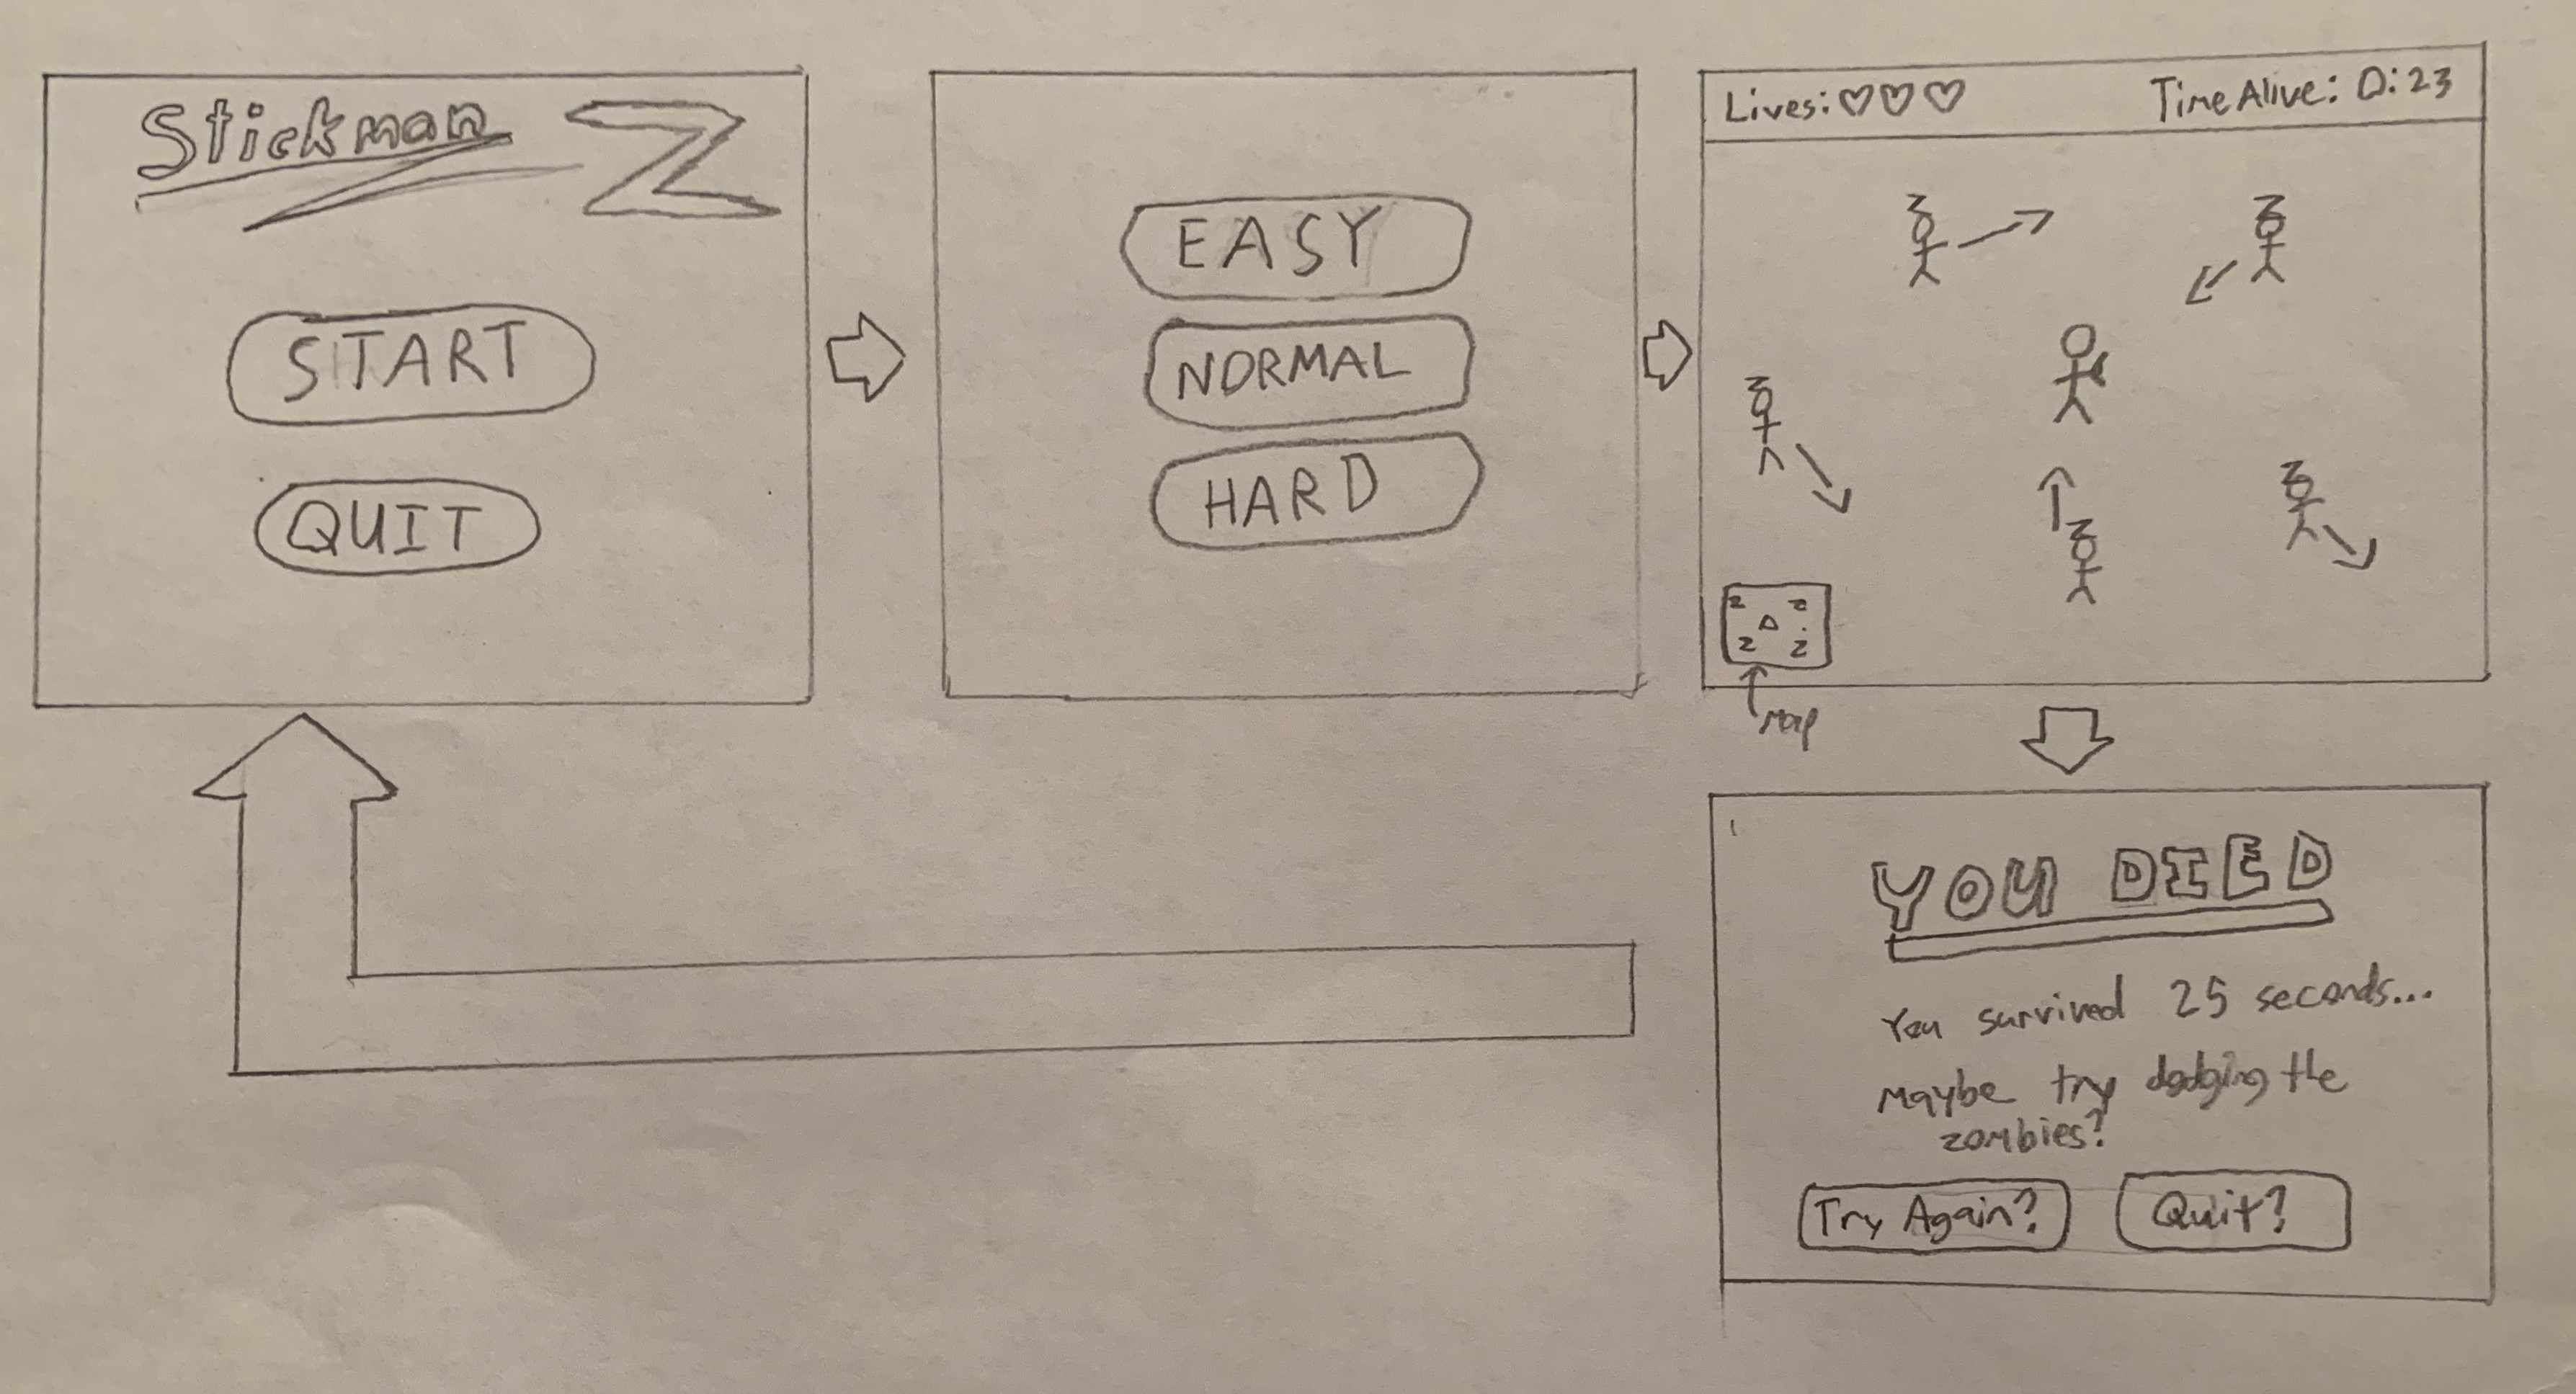 Stickman Z
START
QUIT
EASY
NORMAL
HARD
Lives:
Time Alive: 0:23
Z
Z
Z
Z
Z
Z Z
Z Z
Map
YOU DIED
You survived 25 seconds...
Maybe try dodging the
zombies?
Try Again?
Quit?